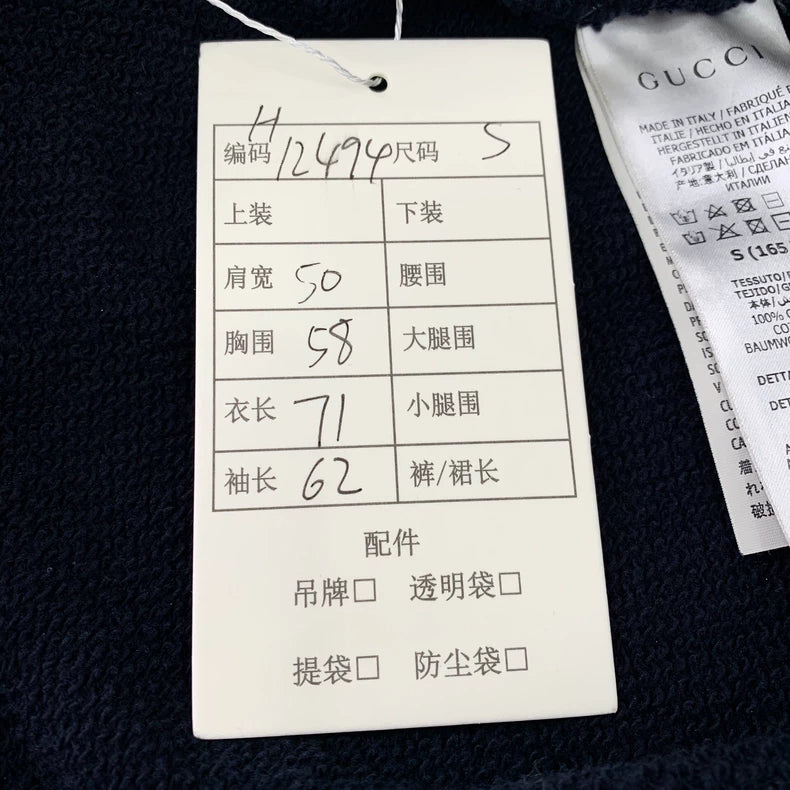 H
编码 12494 尺码 S
上装 下装
肩宽 50 腰围
胸围 58 大腿围
衣长 71 小腿围
袖长 62 裤/裙长
配件
吊牌□ 透明袋□
提袋□ 防尘袋□
GUCCI
MADE IN ITALY / FABRIQUÉ E
ITALIE / HECHO EN ITALIA
HERGESTELLT IN ITALIEN
FABRICADO EM ITALIA
イタリア製 /
产地:意大利 / СДЕЛАН
ИТАЛИИ
S (165
TESSUTO/
TEJIDO/
本体/
100% C
CO
BAUMWO
DETTA
DET